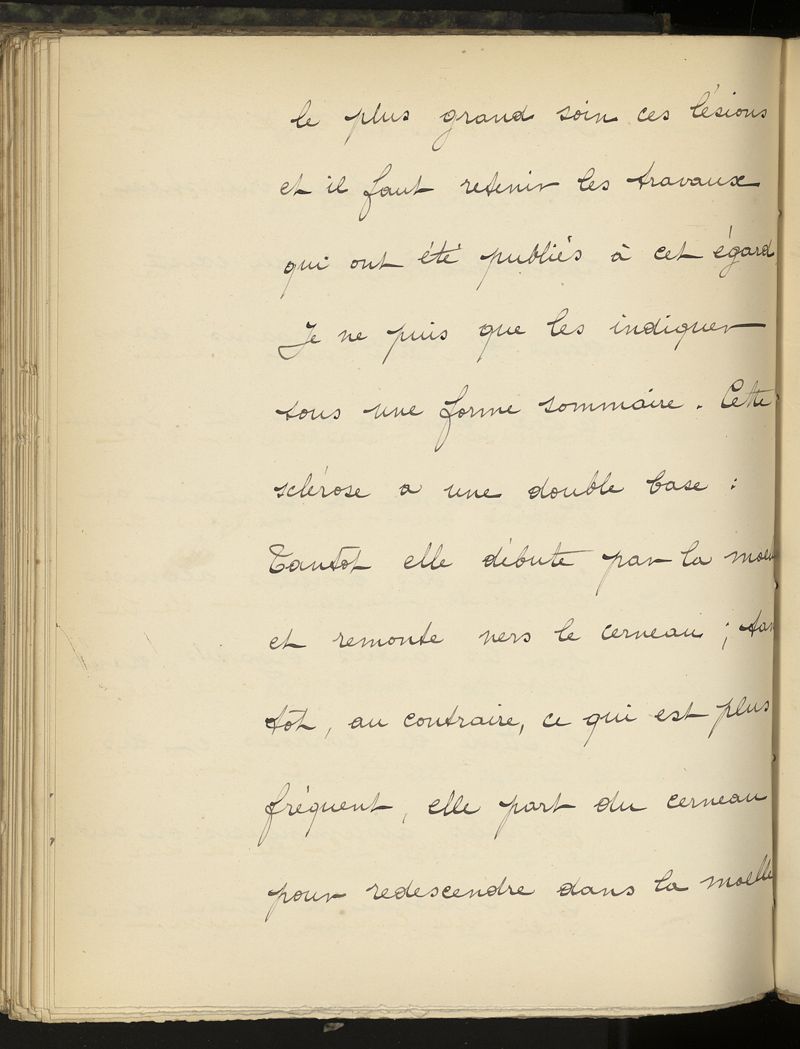 le plus grand soin ces lésions
et il faut retenir les travaux
qui ont été publiés à cet égard
Je ne puis que les indiquer
sous une forme sommaire. Cette
sclérose a une double base :
Tantôt elle débute par la moel
et remonte vers le cerveau ; tan
tôt, au contraire, ce qui est plus
fréquent, elle part du cerveau
pour redescendre dans la moelle